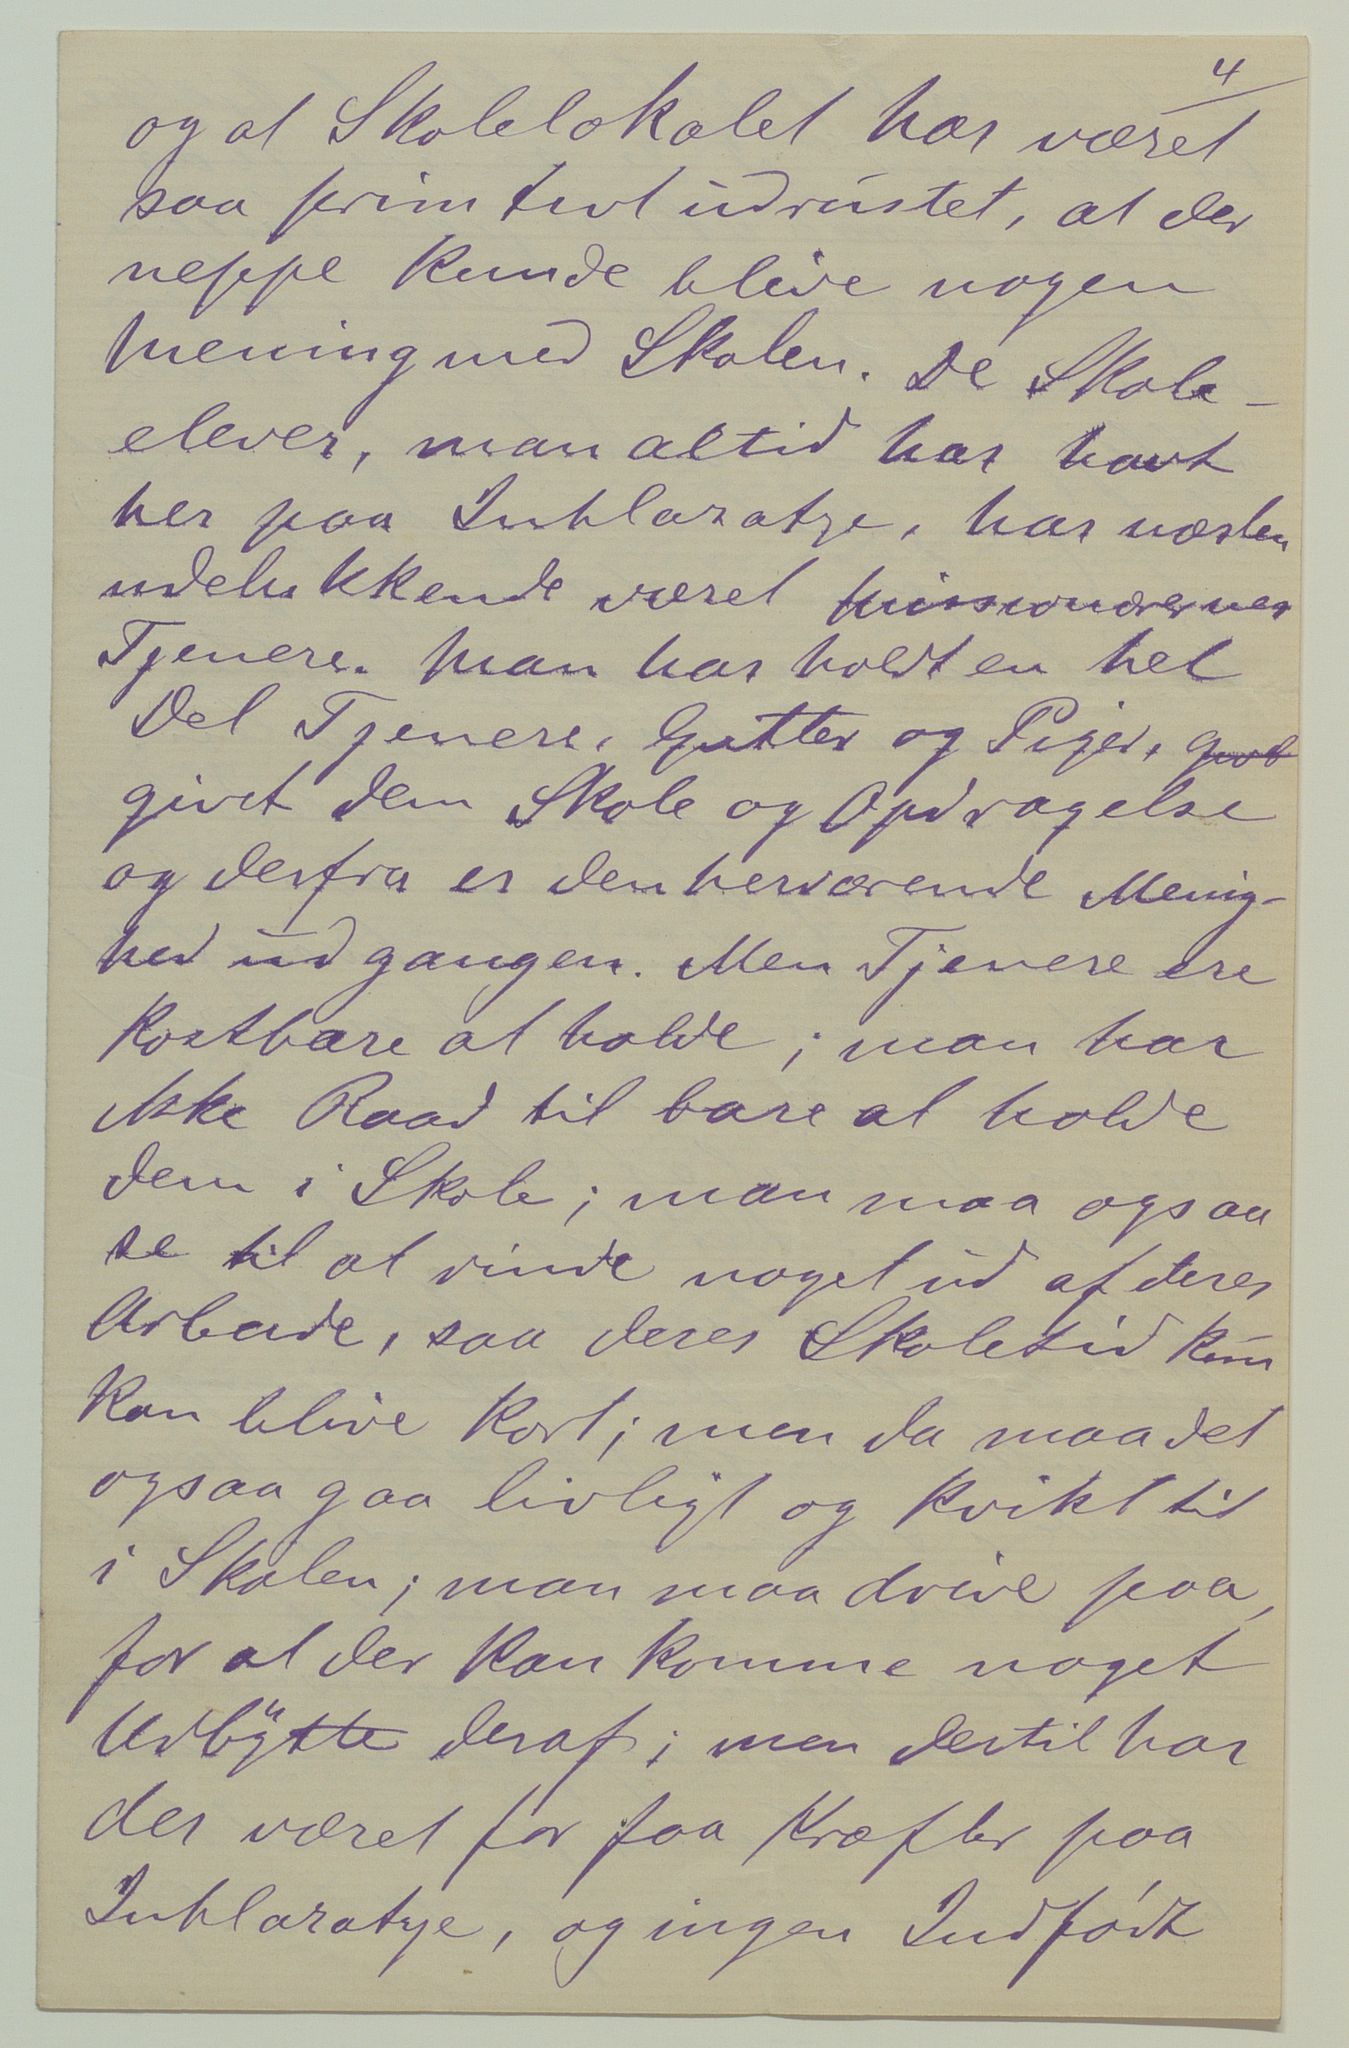 4
og at Skolelokalet har været
saa primitivt udrustet, at der
neppe kunde blive nogen
Mening med Skolen. De Skole-
elever, man altid har havt
her paa Inhlazatye, har næsten
udelukkende været Missionærernes
Tjenere. Man har holdt en hel
Del Tjenere, Gutter og Piger,
givet dem Skole og Opdragelse
og derfra er den herværende Menig-
hed udgangen. Men Tjenere ere
kostbare at holde; man har
ikke Raad til bare at holde
dem i Skole; man maa ogsaa
se til at vinde noget ud af deres
Arbeide, saa deres Skoletid kun
kan blive kort; men da maa det
ogsaa gaa livligt og kvikt til
i Skolen; man maa drive paa,
for at der kan komme noget
Udbytte deraf; men dertil har
der været for faa Kræfter paa
Inhlazatye, og ingen Indfødt